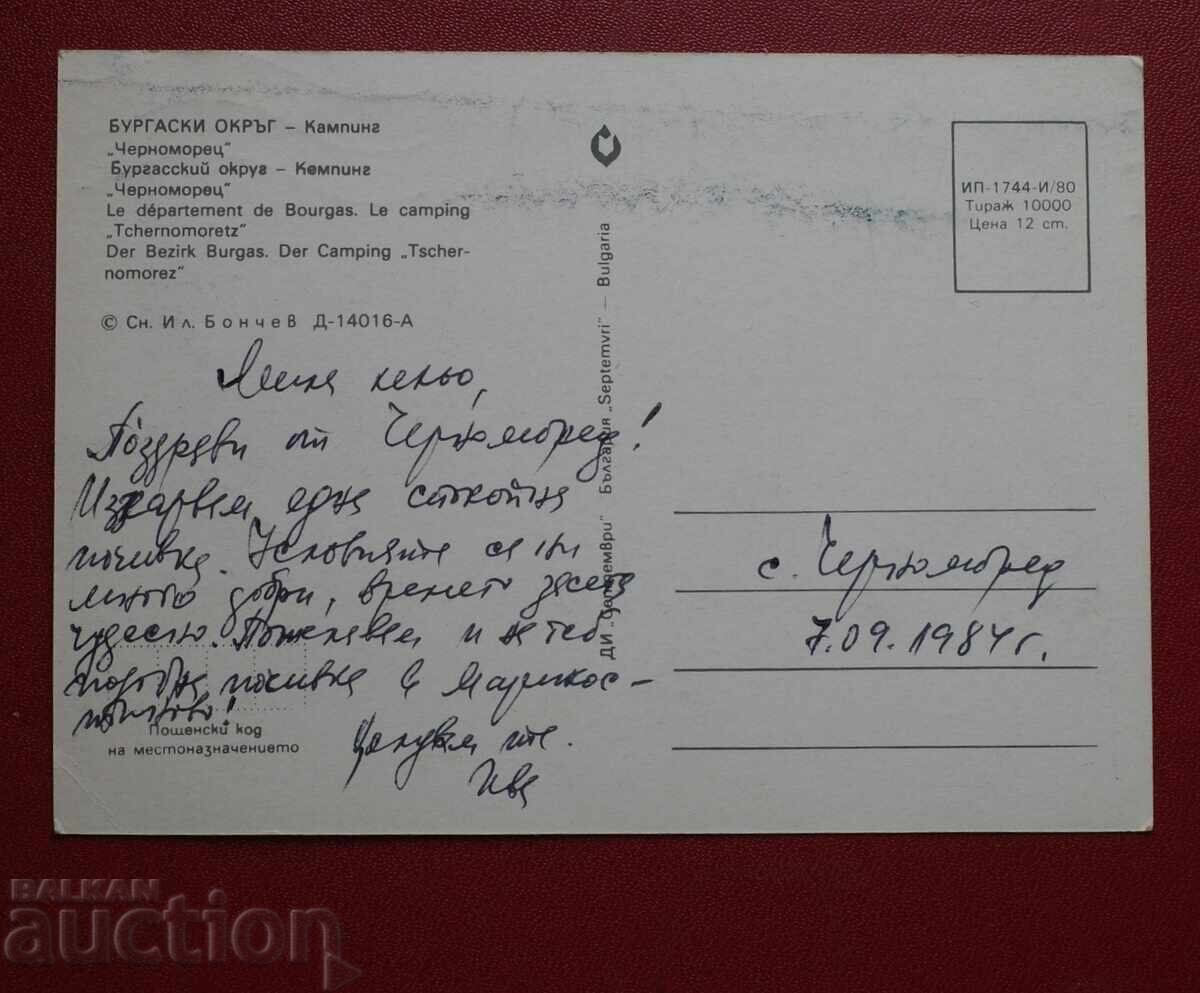 БУРГАСКИ ОКРЪГ – Кампинг
„Черноморец"
Бургасский округ – Кемпинг
„Черноморец"
Le département de Bourgas. Le camping
„Tchernomoretz"
Der Bezirk Burgas. Der Camping „Tscher-
nomorez"
© Сн. Ил. Бончев Д-14016-А
кельо,
Поздрави от !
Изкарвам една спокойна
почивка. Условията са ни
много добри, времето засега
чудесно. Пожелавам и на теб
подобна почивка в
Пощенски код
на местоназначението
Целувам те.
Ива
ДИ „Септември" България „Septemvri" – Bulgaria
ИП-1744-И/80
Тираж 10000
Цена 12 ст.
с.
7.09.1984 г.
BALKAN
auction